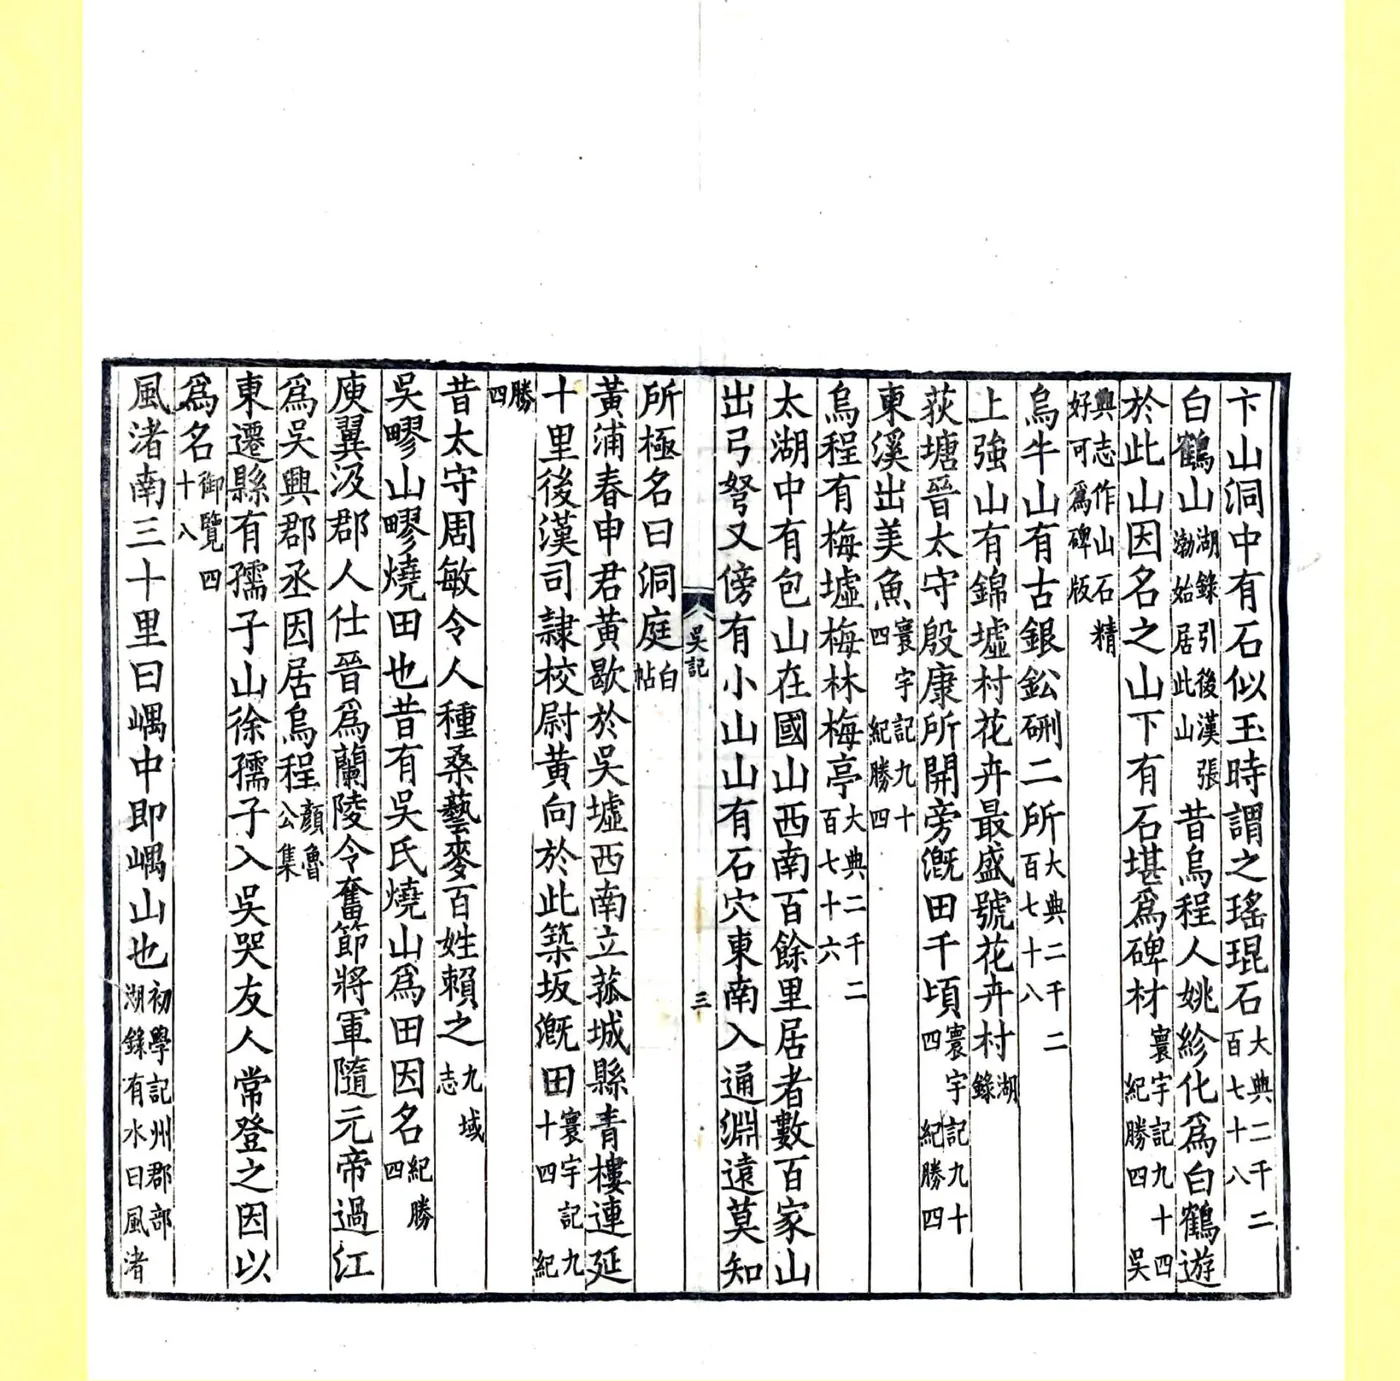 卞山洞中有石似玉時謂之瑤琨石大典二千二百七十八
白鶴山湖錄引後漢張渤始居此山昔烏程人姚紾化爲白鶴遊
於此山因名之山下有石堪爲碑材寰宇記九十四紀勝四吳
興志作山石精好可爲碑版
烏牛山有古銀鈆硎二所大典二千二百七十八
上強山有錦墟村花卉最盛號花卉村湖錄
荻塘晉太守殷康所開旁漑田千頃寰宇記九十四紀勝四
東溪出美魚寰宇記九十四紀勝四
烏程有梅墟梅林梅亭大典二千二百七十六
太湖中有包山在國山西南百餘里居者數百家山
出弓弩又傍有小山山有石穴東南入通淵遠莫知
吳記
三
所極名曰洞庭白帖
黃浦春申君黃歇於吳墟西南立菰城縣青樓連延
十里後漢司隸校尉黃向於此築坂漑田寰宇記九十四紀
勝四
昔太守周敏令人種桑藝麥百姓賴之九域志
吳疁山疁燒田也昔有吳氏燒山爲田因名紀勝四
庾翼汲郡人仕晉爲蘭陵令奮節將軍隨元帝過江
爲吳興郡丞因居烏程顏魯公集
東遷縣有孺子山徐孺子入吳哭友人常登之因以
爲名御覽四十八
風渚南三十里曰嵎中即嵎山也初學記州郡部湖錄有水曰風渚